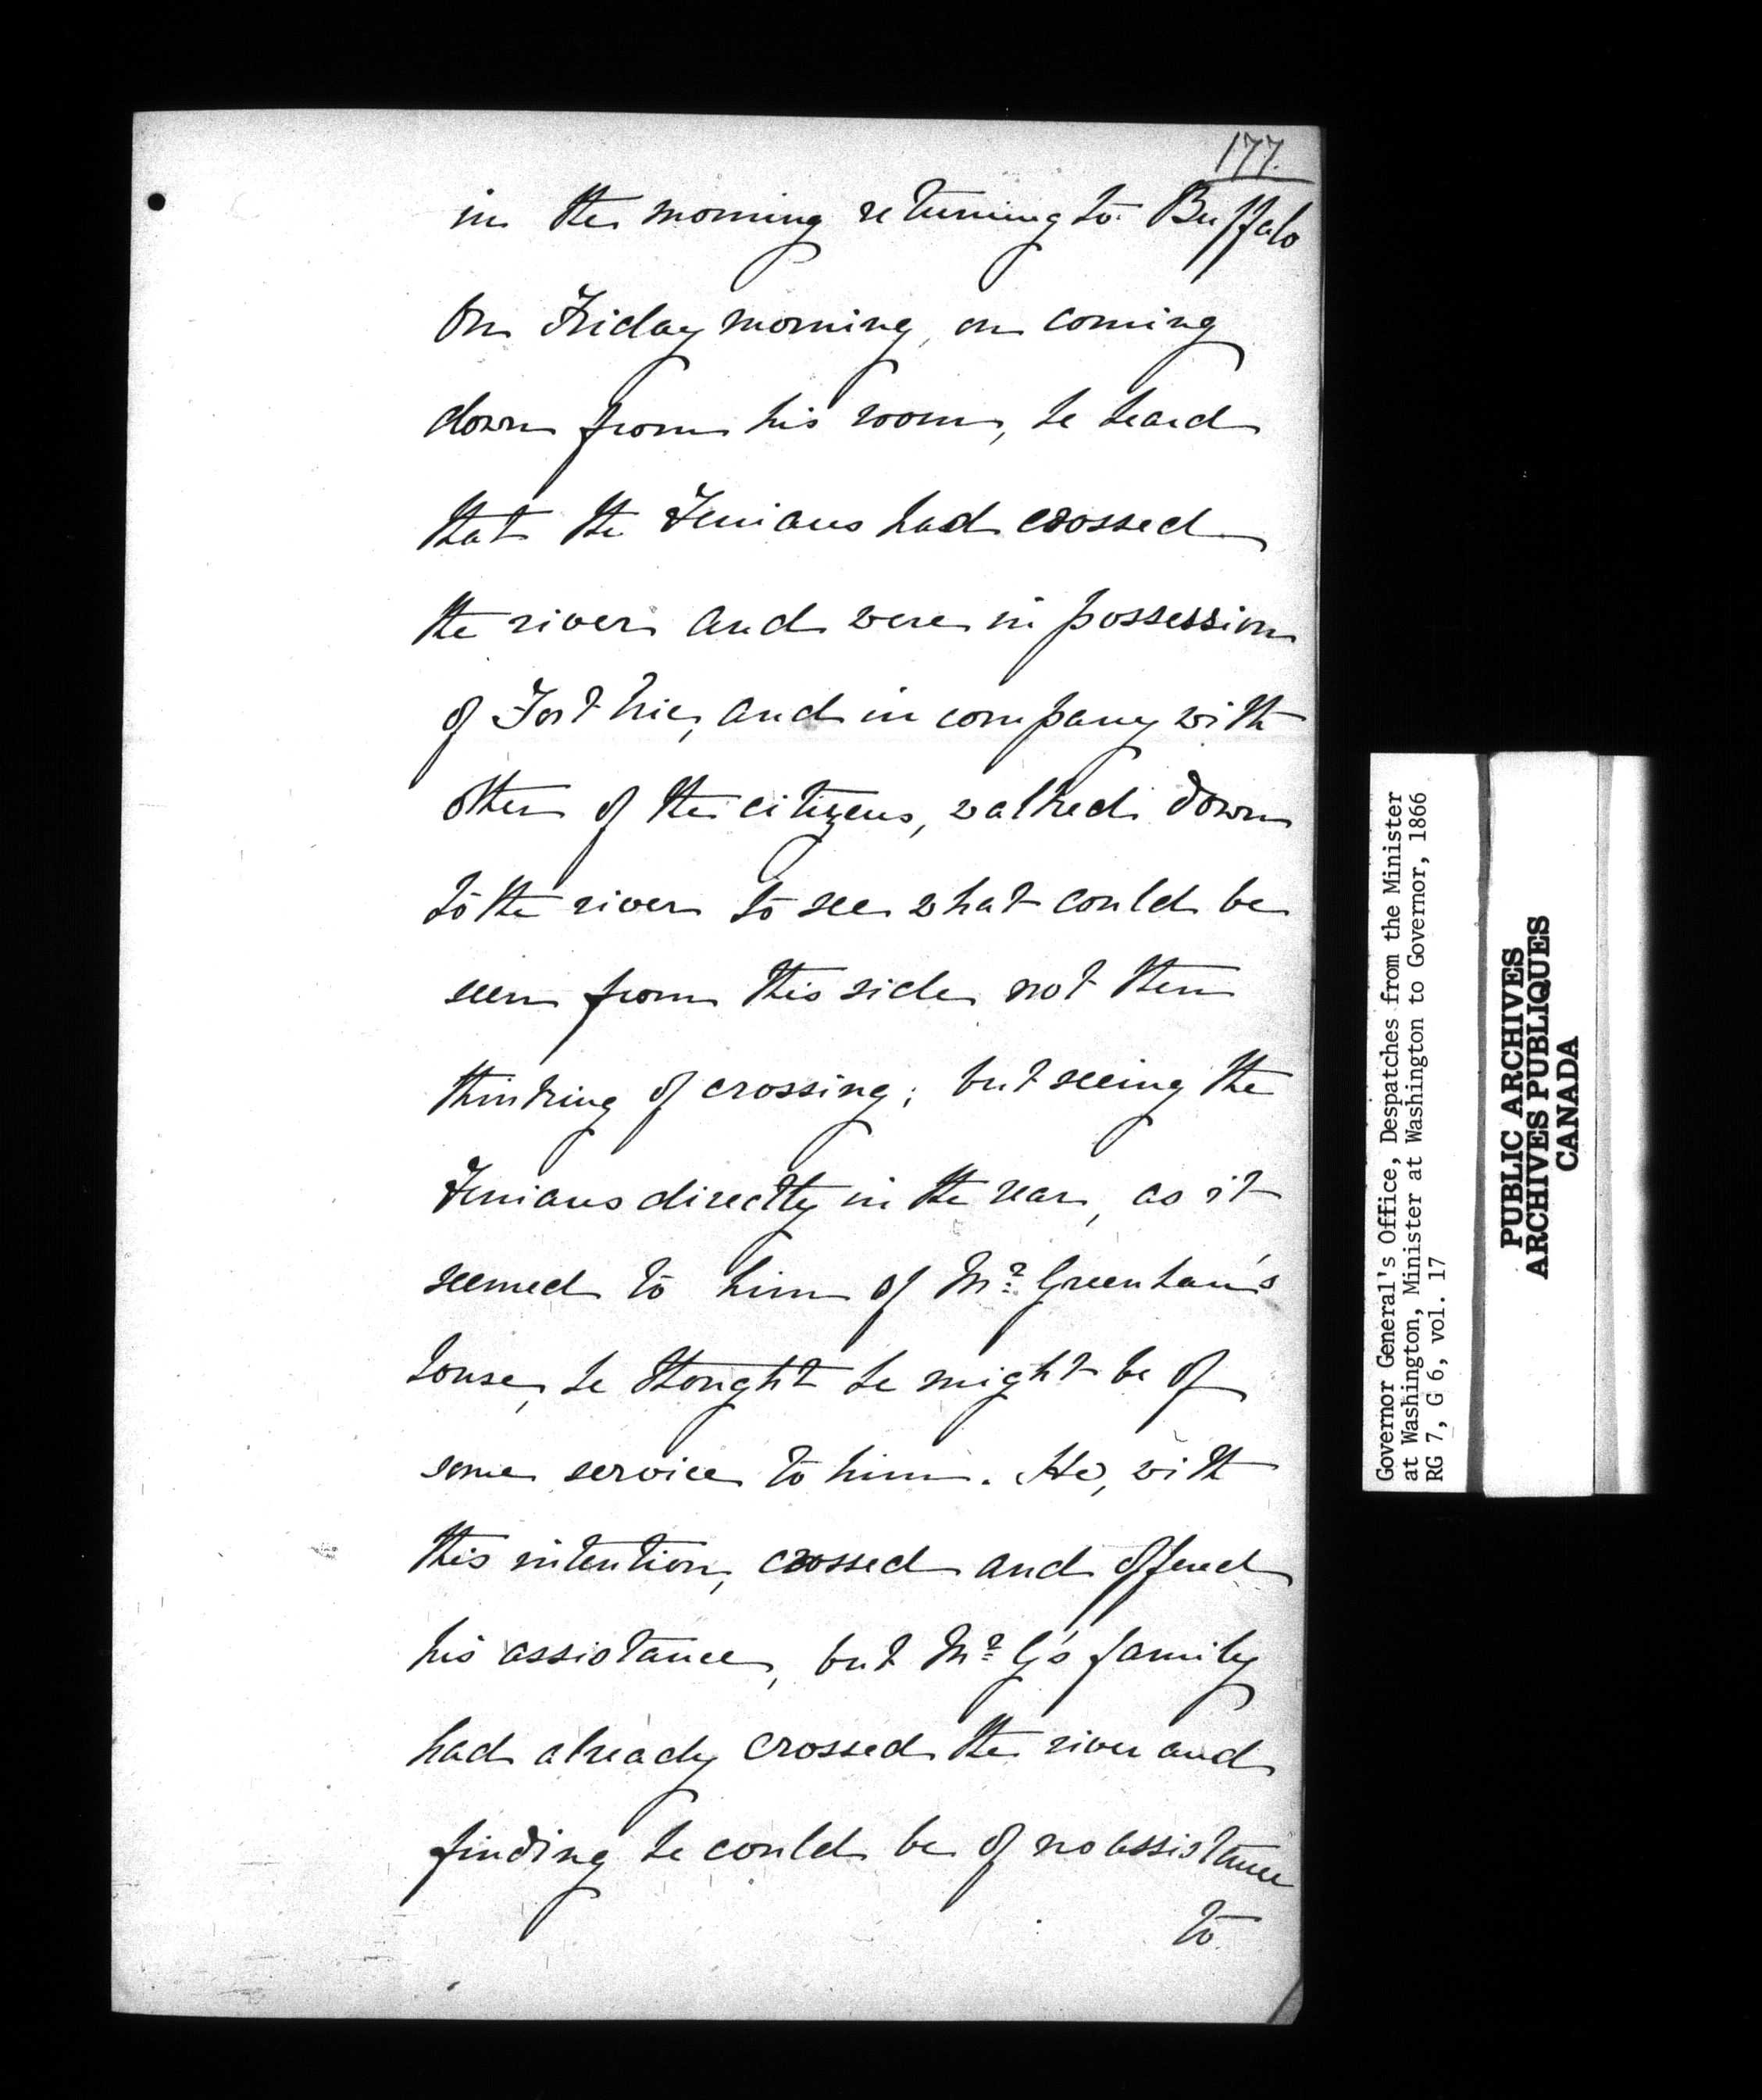 177.
in the morning returning to Buffalo
On Friday morning, on coming
down from his room, he heard
that the Fenians had crossed
the river and were in possession
of Fort Erie, and in company with
other of the citizens, walked down
to the river to see what could be
seen from this side not then
thinking of crossing; but seeing the
Fenians directly in the rear, as it
seemed to him of Mr. Greenhan's
house, he thought he might be of
some service to him. He, with
this intention, crossed and offered
his assistance, but Mr. G's family
had already crossed the river and
finding he could be of no assistance
to
Governor General's Office, Despatches from the Minister
at Washington, Minister at Washington to Governor, 1866
RG 7, G 6, vol. 17
PUBLIC ARCHIVES
ARCHIVES PUBLIQUES
CANADA